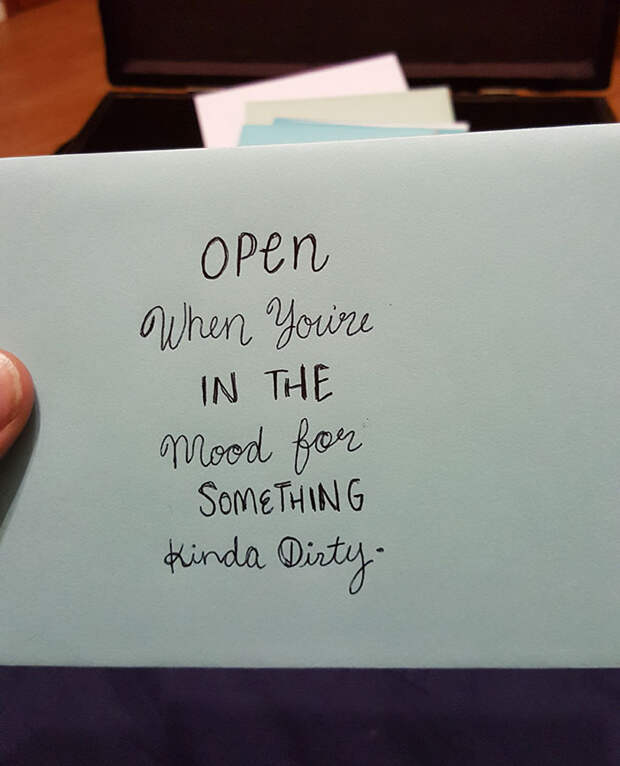 OPen
When You're
IN THE
Mood for
SOMETHING
Kinda Dirty.